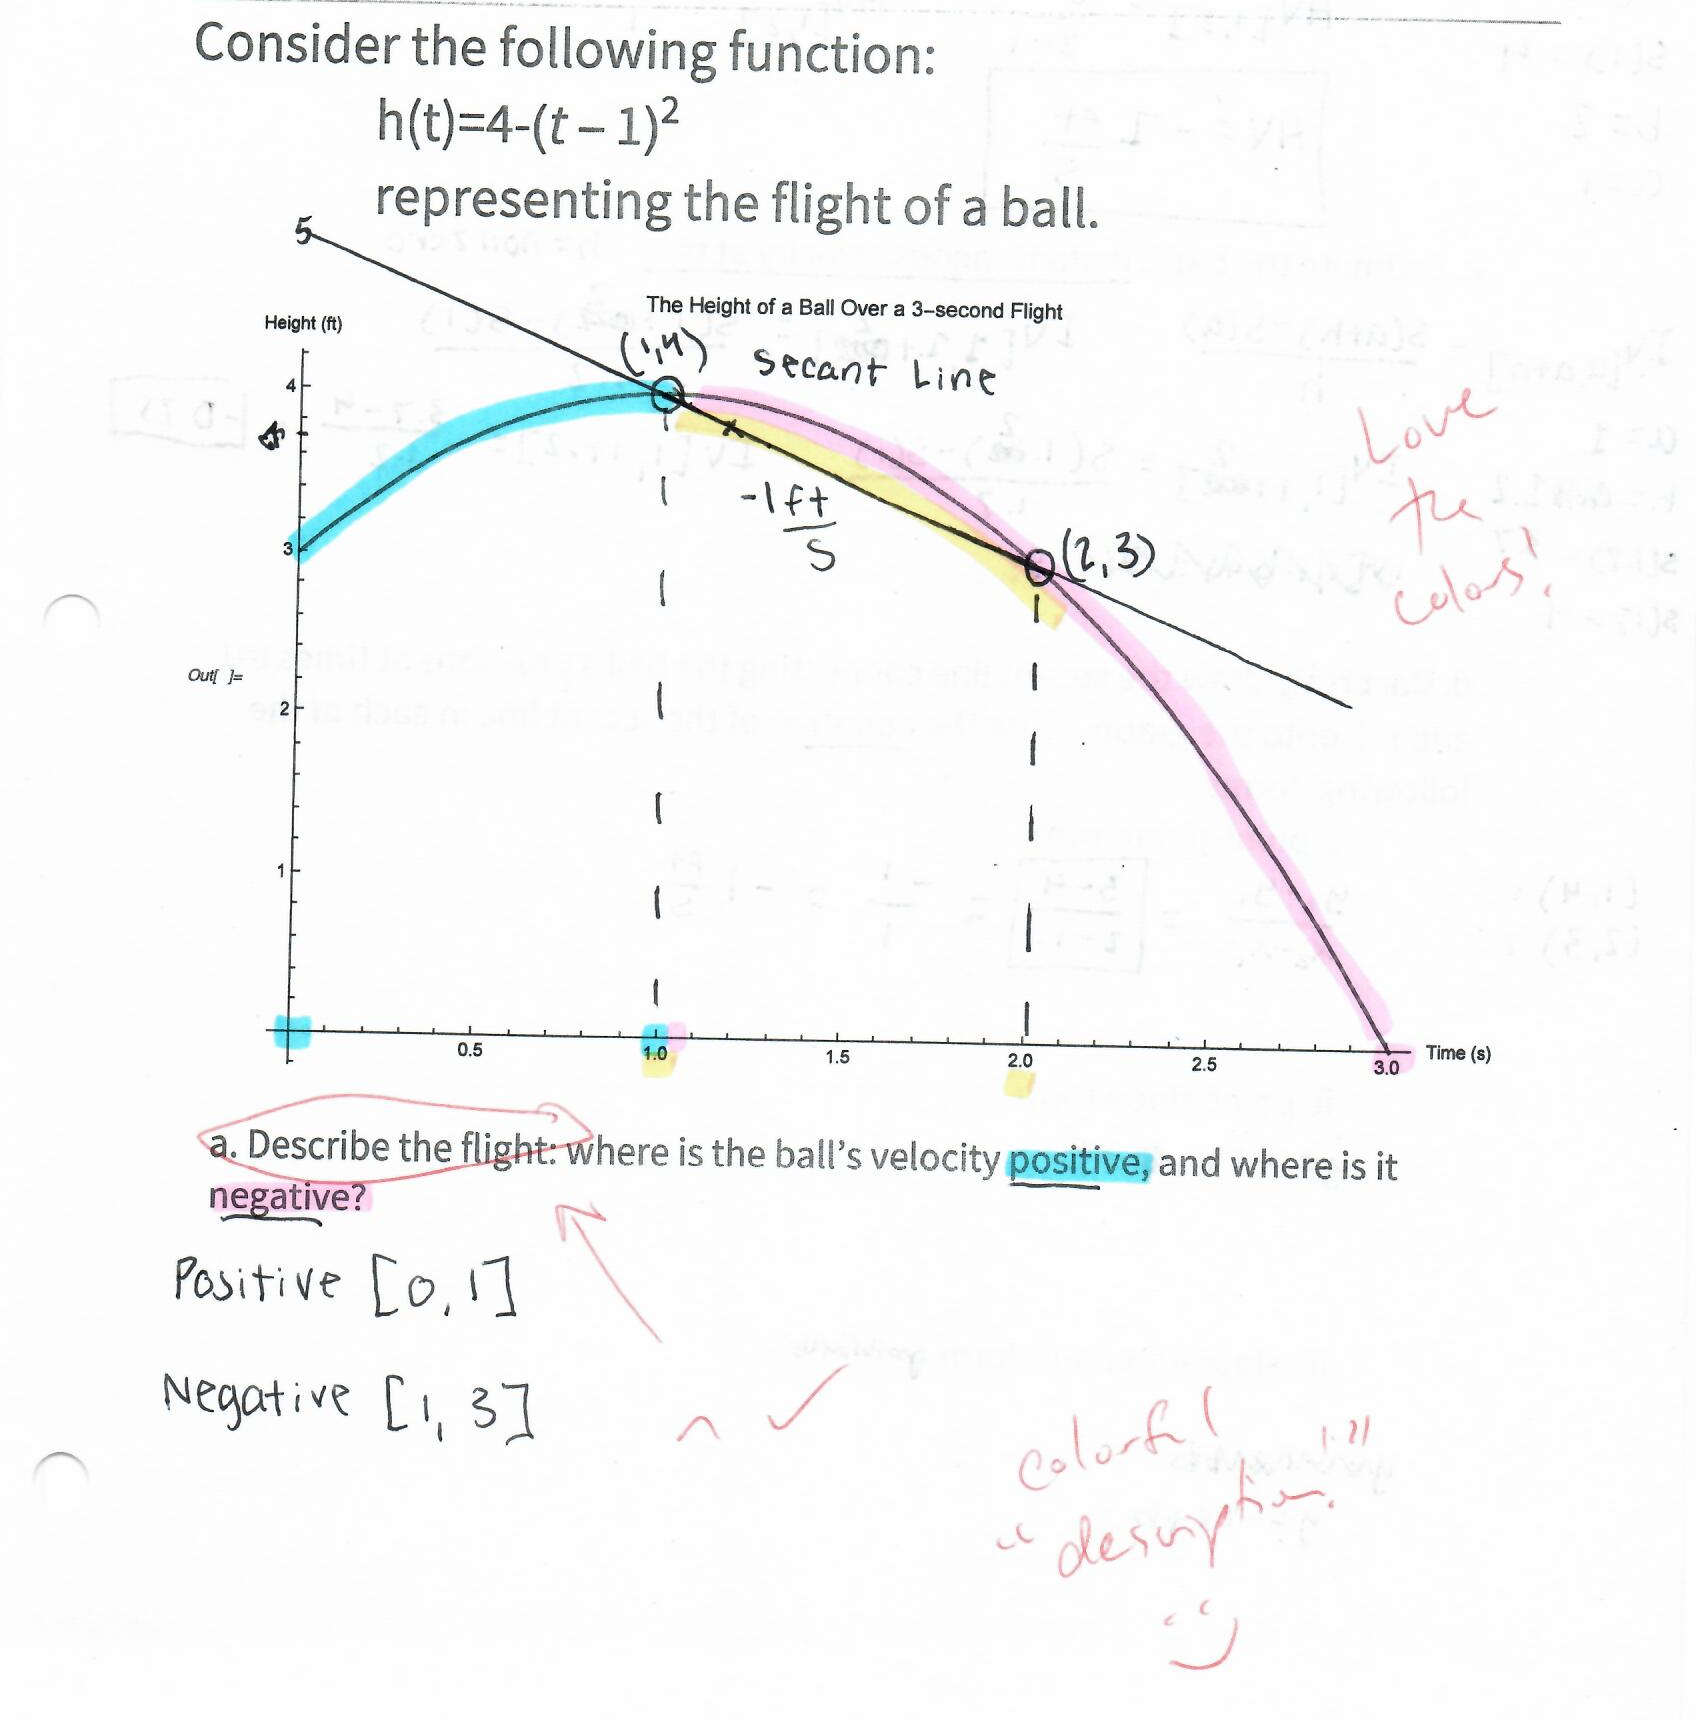 Consider the following function:
h(t)=4-(t – 1)²
representing the flight of a ball.
5
The Height of a Ball Over a 3–second Flight
Height (ft)
(1,4) secant Line
4
Love
the
colors!
-1 ft/s
3
(2,3)
Out[ ]=
2
1
0.5 1.0 1.5 2.0 2.5 3.0 Time (s)
a. Describe the flight: where is the ball's velocity positive, and where is it
negative?
Positive [0, 1]
Negative [1, 3]
colorful
"description!"